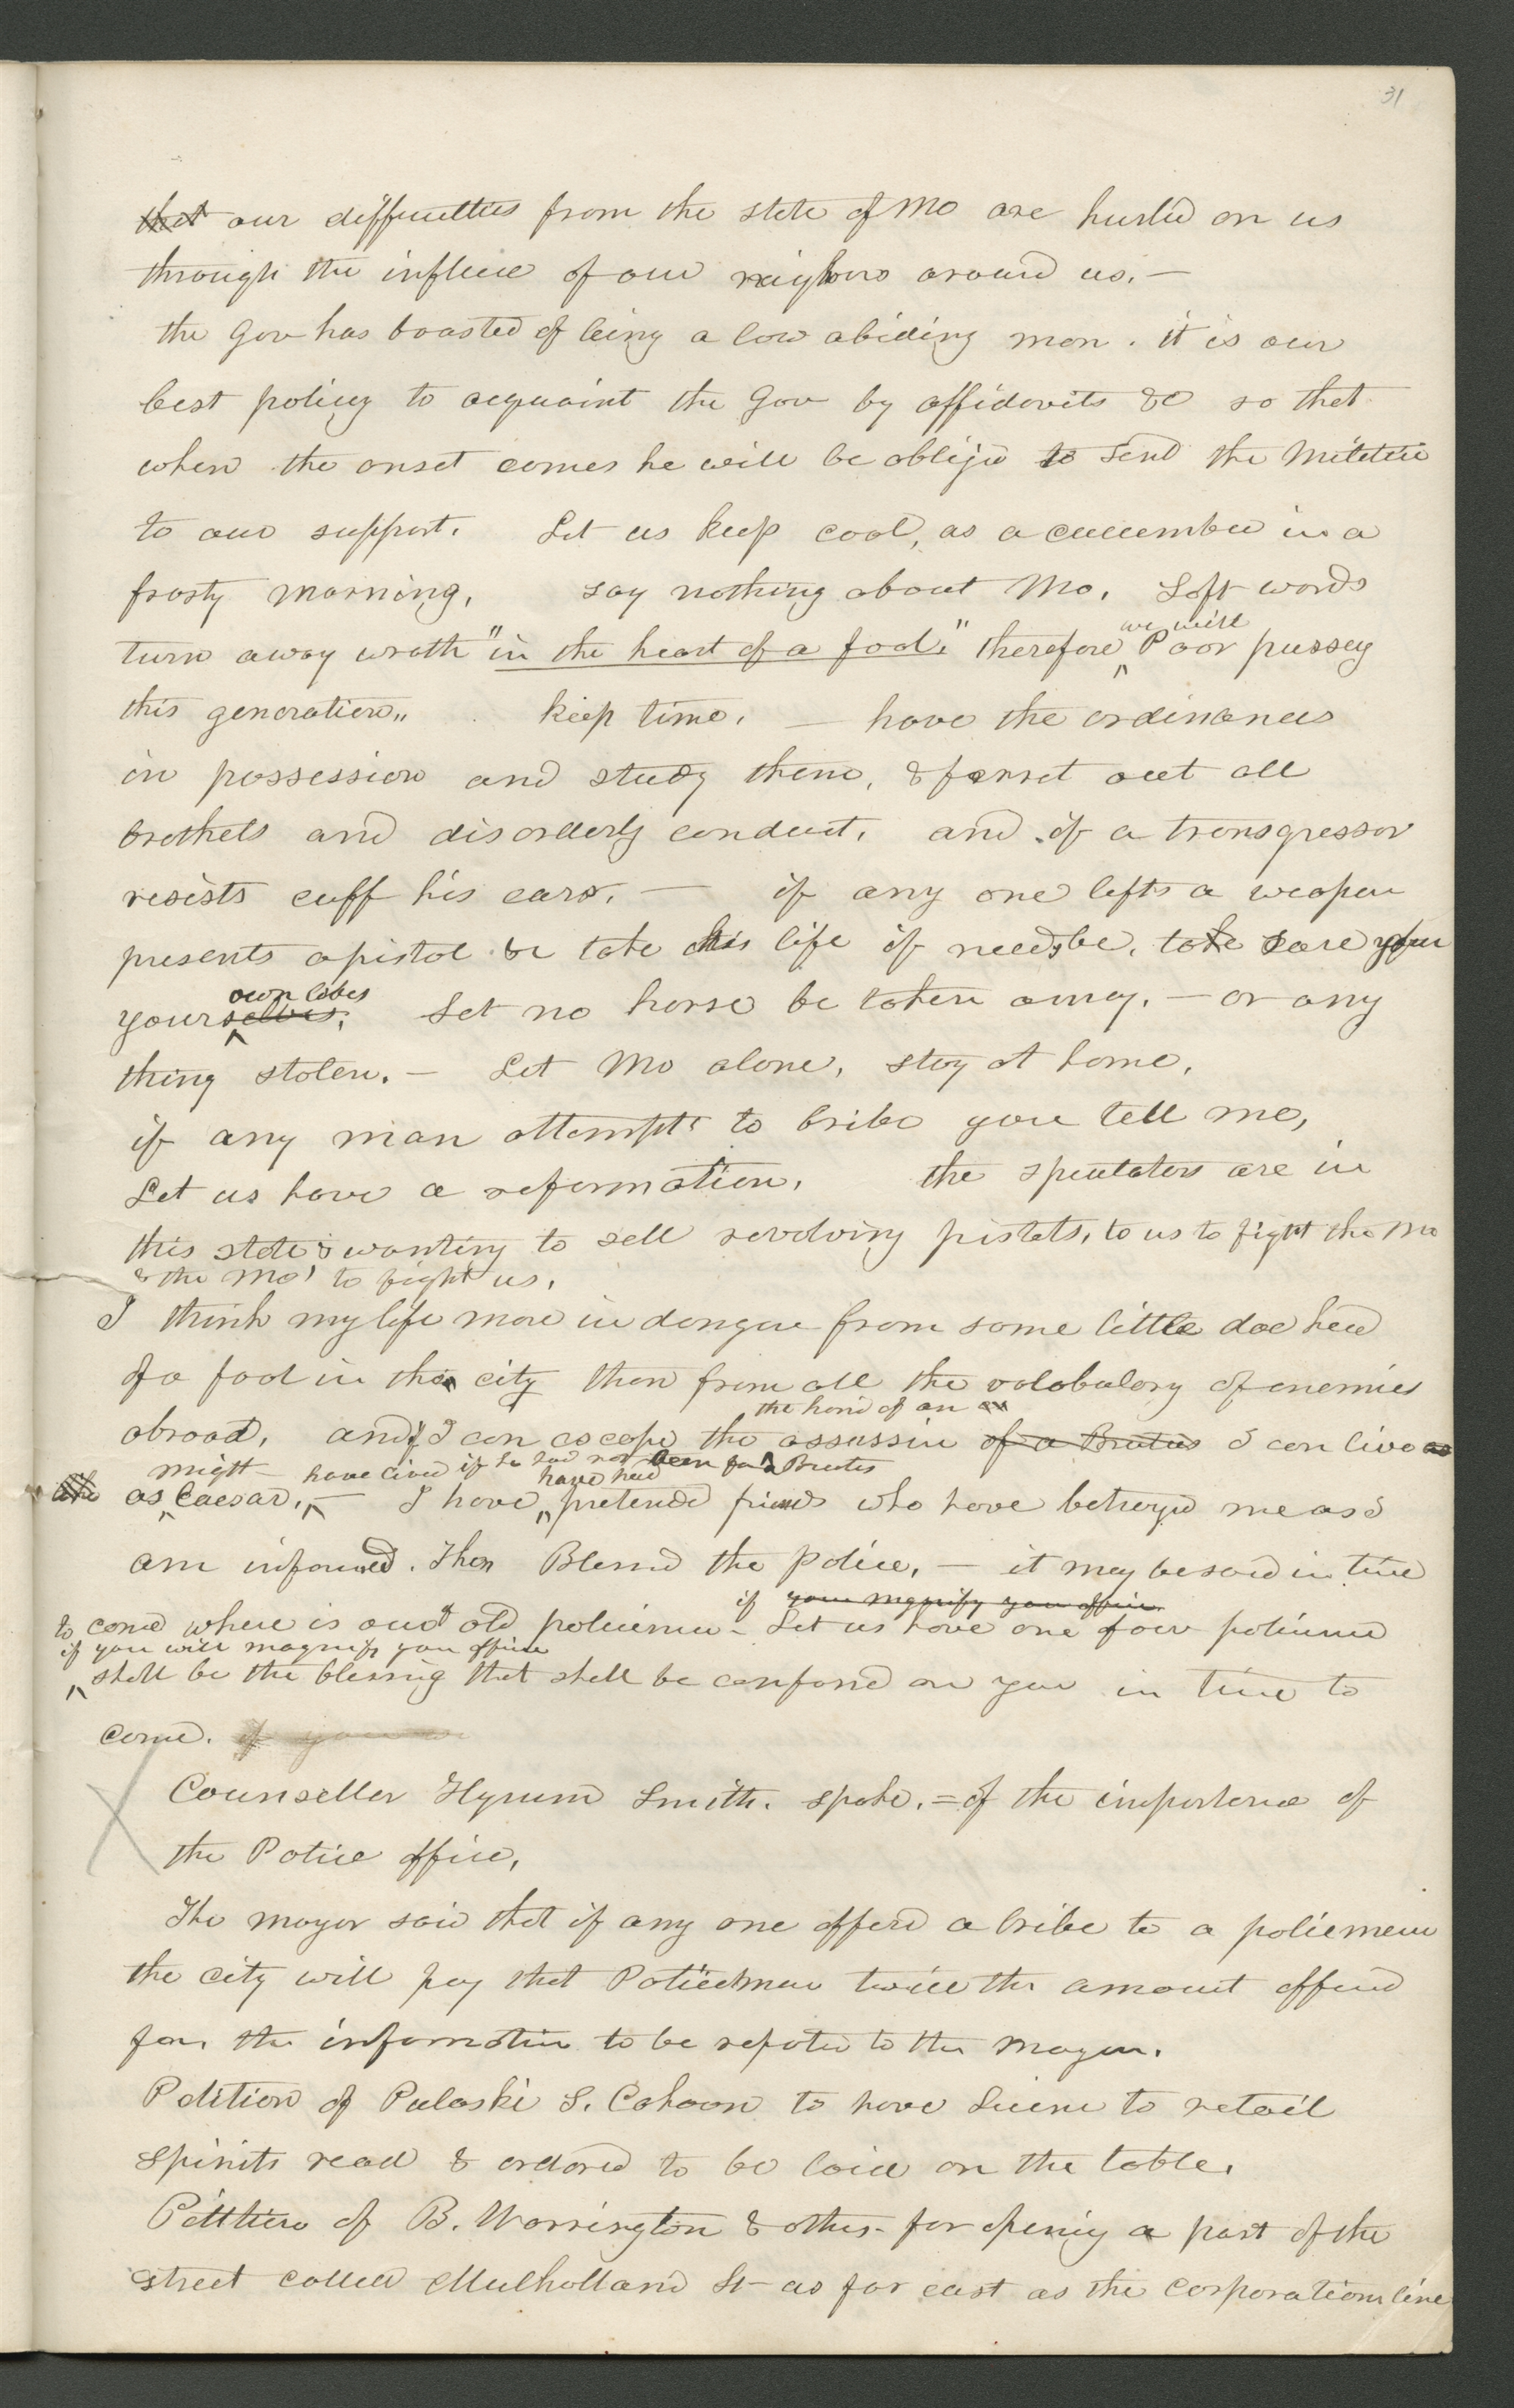 31
that our difficulties from the state of Mo are hurled on us
through the influence of our neighbors around us. —
the Gov has boasted of being a law abiding man. it is our
best policy to acquaint the Gov by affidavits &c so that
when the onset comes he will be obliged to send the Militia
to our support. Let us keep cool, as a cucumber in a
frosty morning, say nothing about Mo. Soft words
we will
turn away wrath "in the heart of a fool." therefore Poor pussey
this generation,, keep time. — have the ordinances
in possession and study them, & ferret out all
brothels and disorderly conduct. and if a transgressor
resists cuff his ears. — if any one lifts a weapon
presents a pistol &c take his life if needs be. take care of
own lives
yourselves. Let no horse be taken away. — or any
thing stolen. — Let Mo alone, stay at home,
if any man attempts to bribe you tell me,
Let us have a reformation. the speculators are in
this state & wanting to sell revolving pistols, to us to fight the Mo
& the Mo' to fight us.
I think my life more in danger from some little doe head
of a fool in this city than from all the volabulary of enemies
the hand of an
abroad. and if I can escape the assassin of a Brutus I can live as
might have lived if he had not been for Brutus
have had
as Caesar, — I have pretended friends who have betrayed me as I
am informed. Then Blessed the police, — it may be said in time
if your magnify your office
to come where is our old policemen — Let us have one of our policemen
if you will magnify your office
shall be the blessing that shall be conferred on you in time to
come. if you
Counseller Hyrum Smith. spoke. = of the importance of
the Police office,
The mayor said that if any one offered a bribe to a policeman
the city will pay that Policeman twice the amount offered
for the information to be reported to the Mayor.
Petition of Pulaski S. Cahoon to have License to retail
spirits read & ordered to be laid on the table.
Petition of B. Warrington & others for opening a part of the
street called Mulholland St — as far east as the corporation line